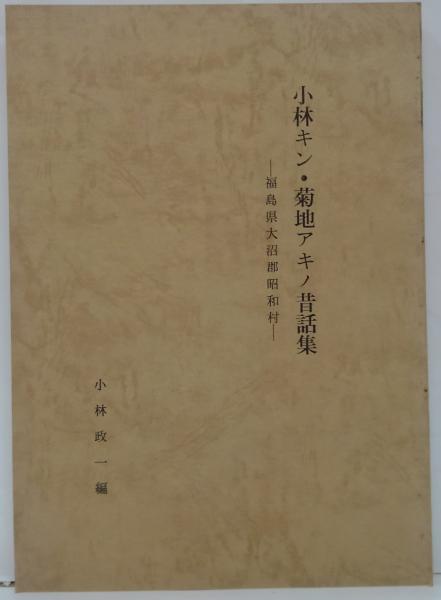 小林キン・菊地アキノ昔話集
―福島県大沼郡昭和村―
小林政一編